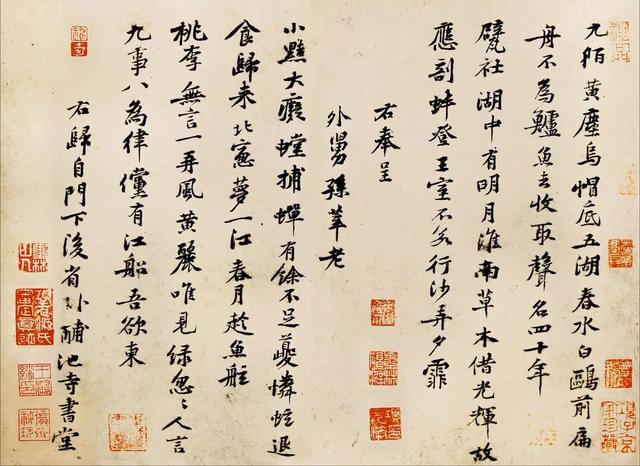 九陌黃塵烏帽底五湖春水白鷗前扁
舟不為鱸魚去收取聲名四十年
甓社湖中有明月淮南草木借光輝故
應剖蚌登王室不若行沙弄夕霏
右奉呈
外舅孫莘老
小黠大癡螳捕蟬有餘不足夔憐蚿退
食歸來北窓夢一江春月趁魚舡
桃李無言一再風黃鸝唯見綠怱〻人言
九事八為律儻有江船吾欲東
右歸自門下後省卧酺池寺書堂